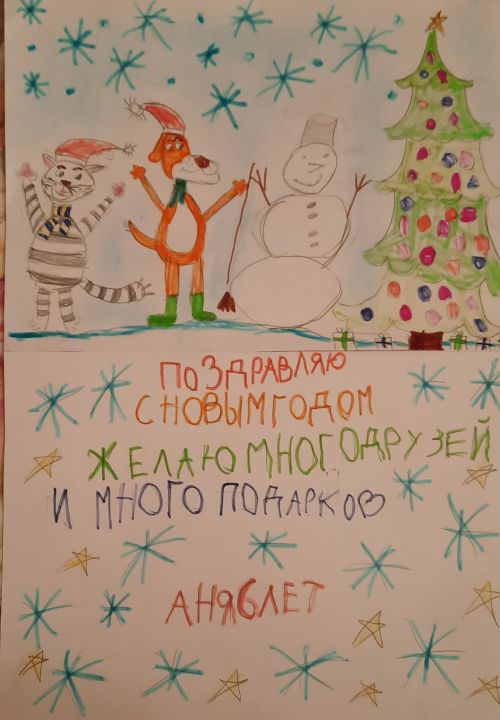 ПОЗДРАВЛЯЮ
С НОВЫМ ГОДОМ
ЖЕЛАЮ МНОГО ДРУЗЕЙ
И МНОГО ПОДАРКОВ
АНЯ 6 ЛЕТ